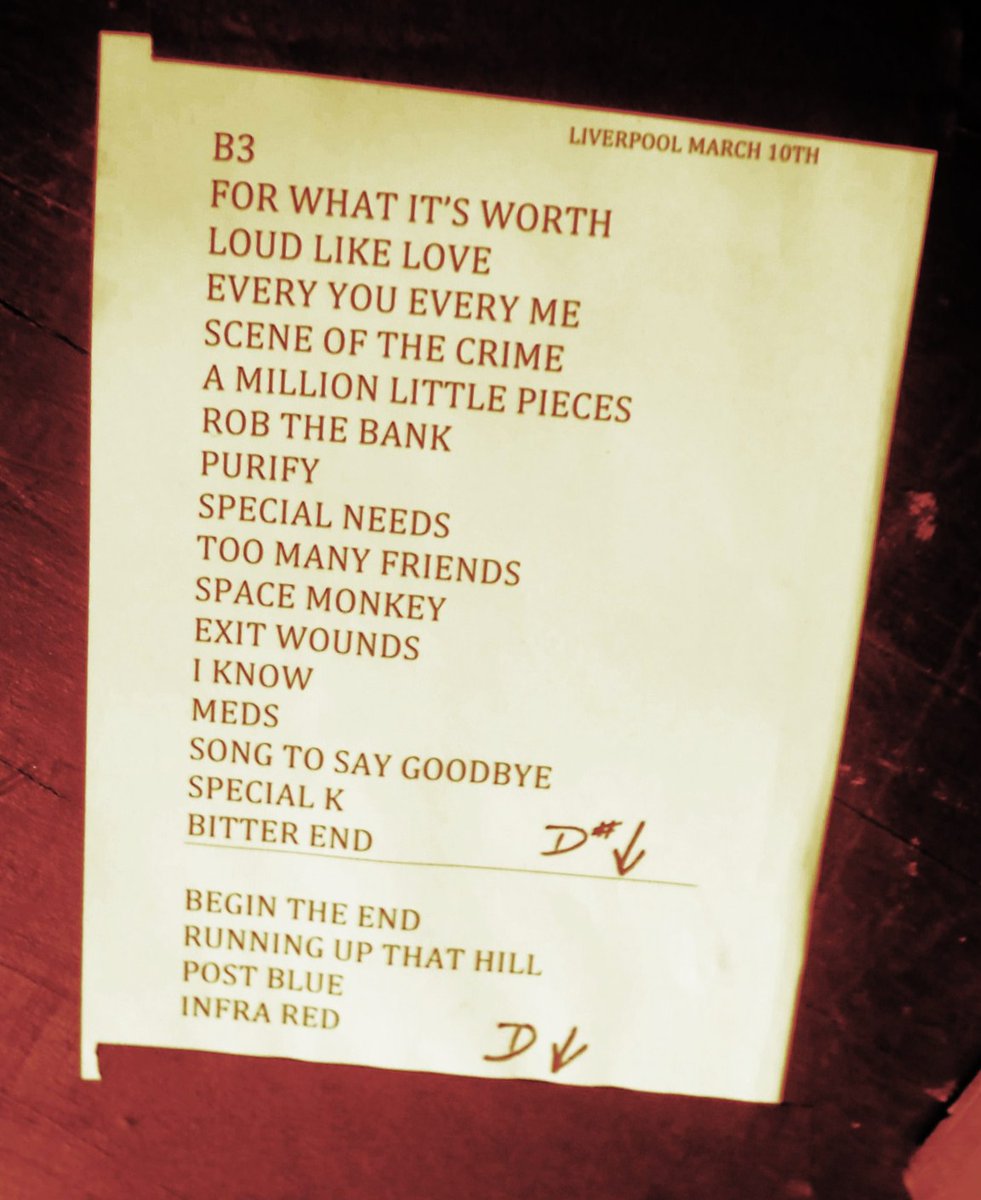 LIVERPOOL MARCH 10TH
B3
FOR WHAT IT'S WORTH
LOUD LIKE LOVE
EVERY YOU EVERY ME
SCENE OF THE CRIME
A MILLION LITTLE PIECES
ROB THE BANK
PURIFY
SPECIAL NEEDS
TOO MANY FRIENDS
SPACE MONKEY
EXIT WOUNDS
I KNOW
MEDS
SONG TO SAY GOODBYE
SPECIAL K
BITTER END D#↓
BEGIN THE END
RUNNING UP THAT HILL
POST BLUE
INFRA RED D↓